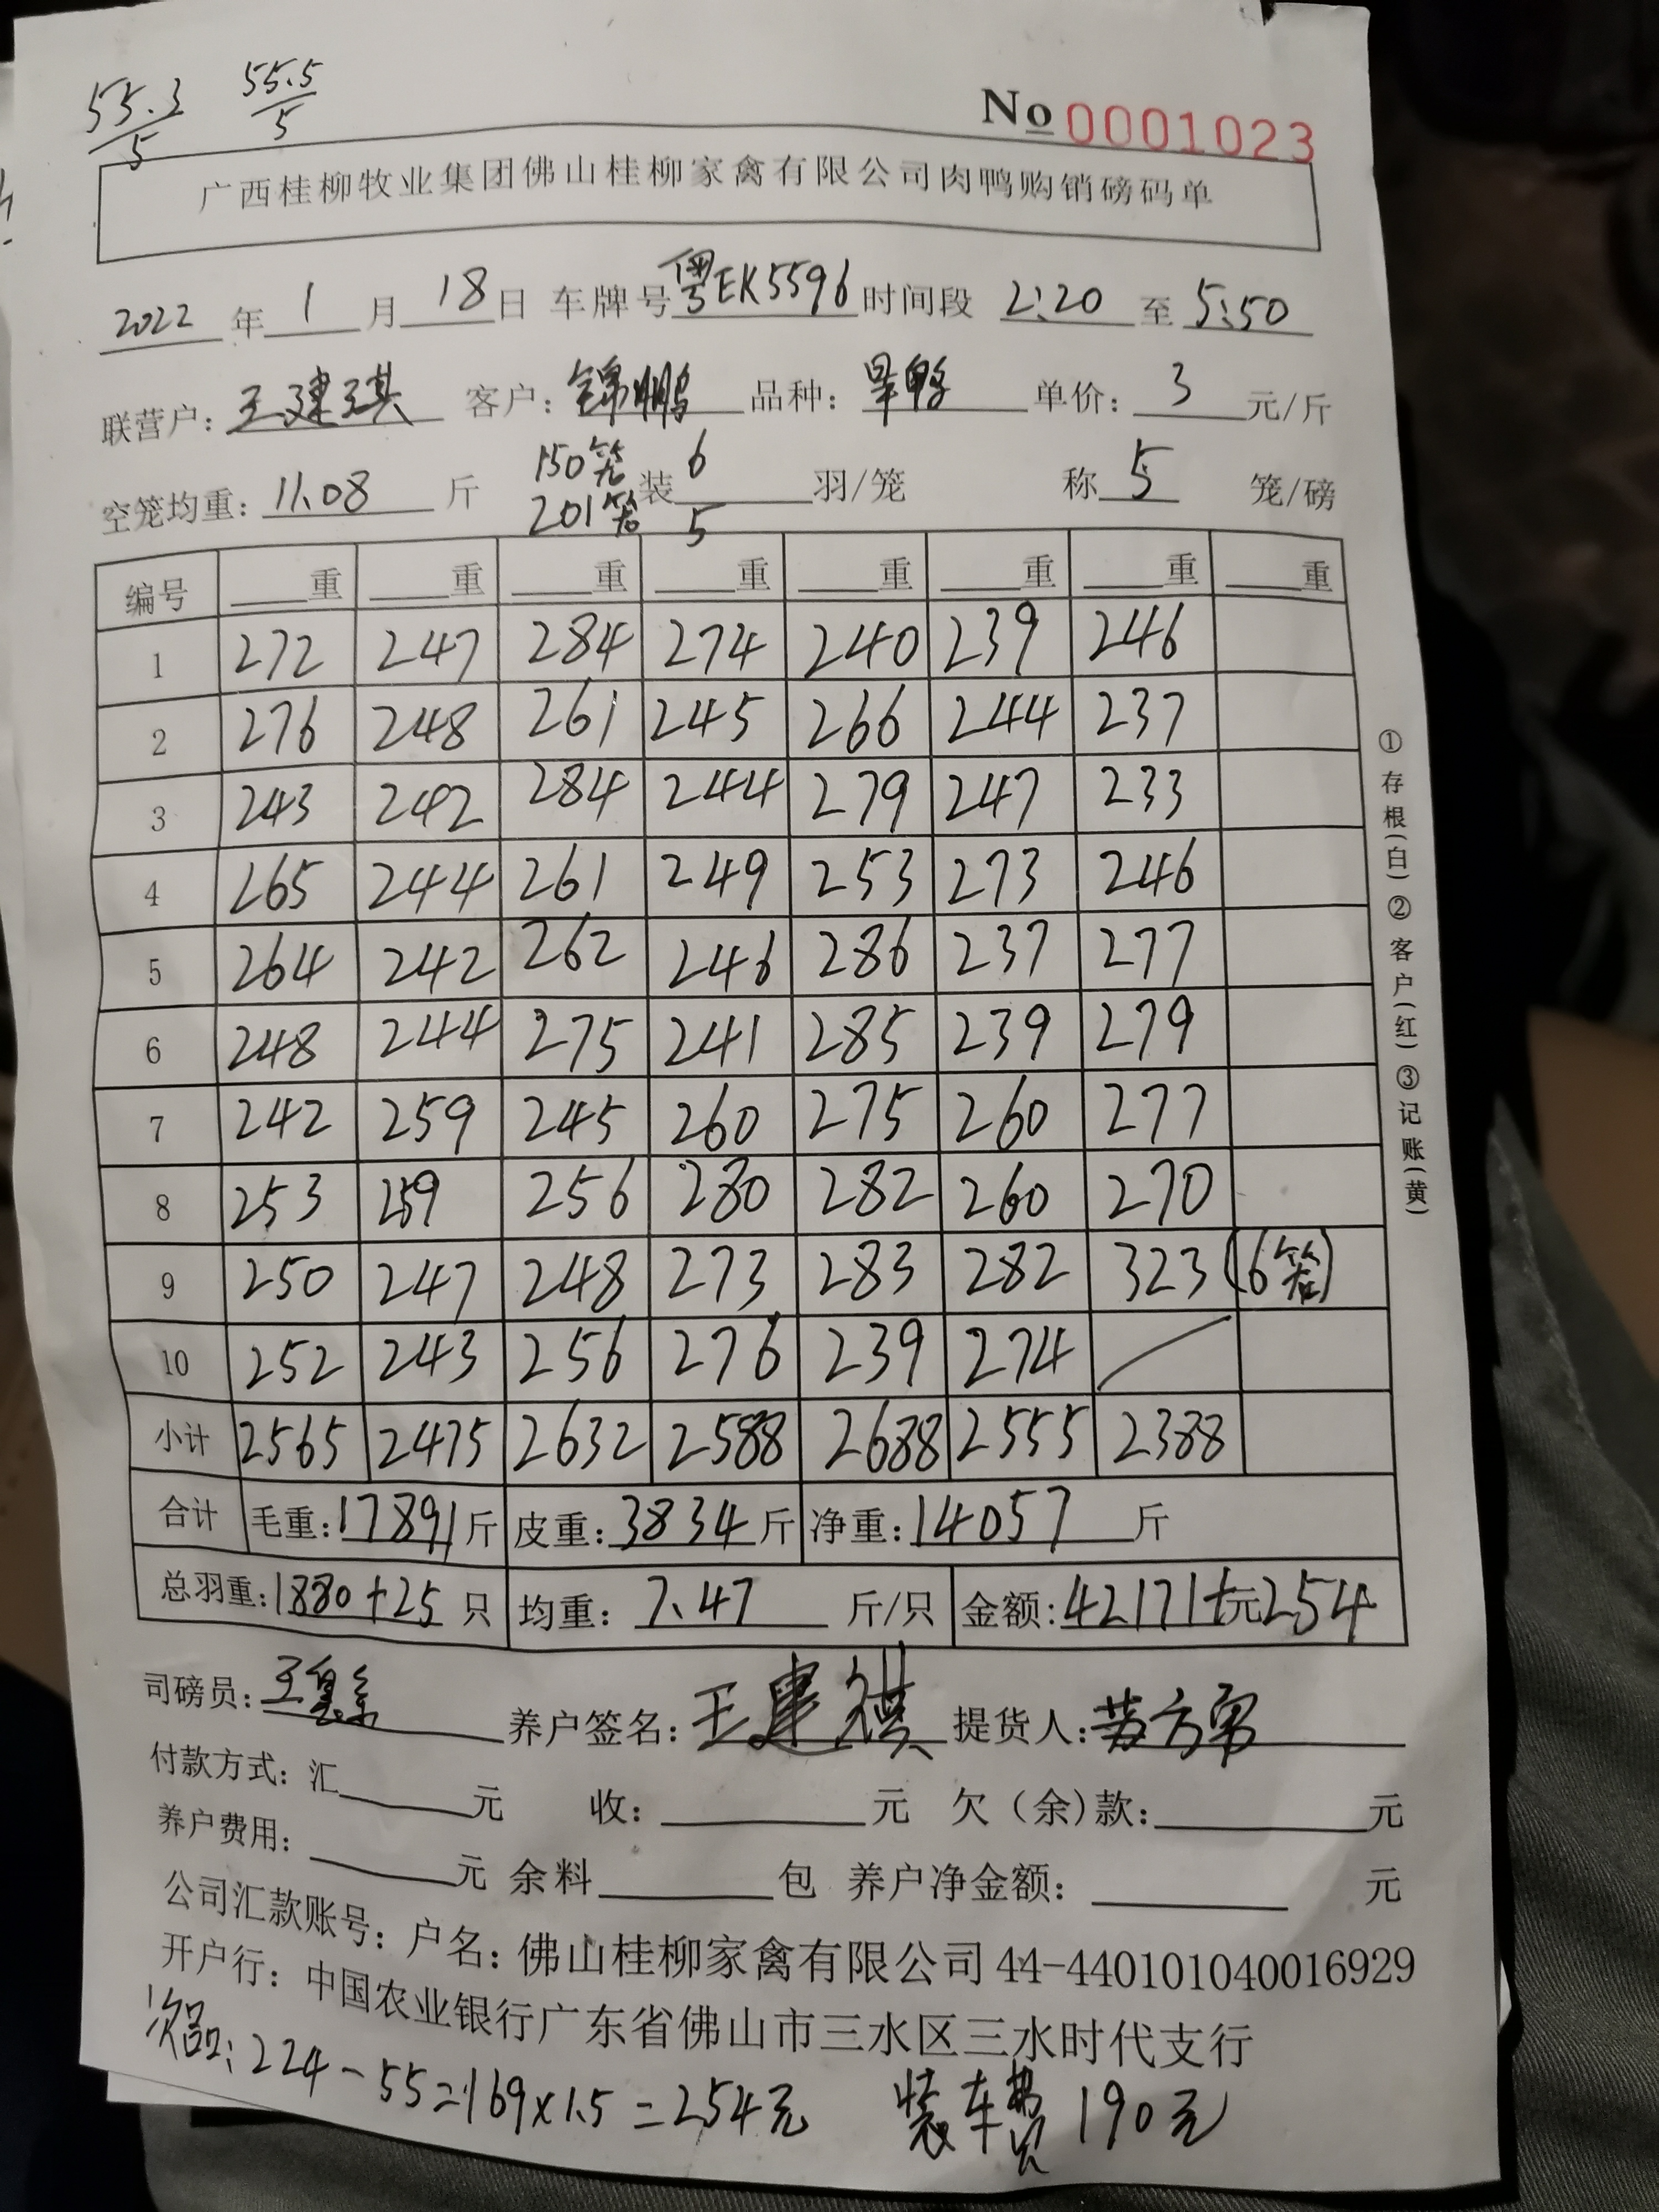 55.3/5 55.5/5
No 0001023
广西桂柳牧业集团佛山桂柳家禽有限公司肉鸭购销磅码单
2022 年 1 月 18 日 车牌号 粤EK5596 时间段 2:20 至 5:50
联营户: 王建琪 客户: 锦鹏 品种: 旱鸭 单价: 3 元/斤
空笼均重: 11.08 斤 150笼 装 6 羽/笼 称 5 笼/磅
201笼 5
编号 重 重 重 重 重 重 重 重
1 272 247 284 274 240 239 246
2 276 248 261 245 266 244 237
3 243 242 284 244 279 247 233
4 265 244 261 249 253 273 246
5 264 242 262 246 286 237 277
6 248 244 275 241 285 239 279
7 242 259 245 260 275 260 277
8 253 259 256 280 282 260 270
9 250 247 248 273 283 282 323 (6笼)
10 252 243 256 276 239 274
小计 2565 2475 2632 2588 2688 2555 2388
合计 毛重: 17891 斤 皮重: 3834 斤 净重: 14057 斤
总羽重: 1880+25 只 均重: 7.47 斤/只 金额: 42171+元254
司磅员: 养户签名: 王建祺 提货人:
付款方式: 汇 元 收: 元 欠(余)款: 元
养户费用: 元 余料 包 养户净金额: 元
公司汇款账号: 户名: 佛山桂柳家禽有限公司 44-440101040016929
开户行: 中国农业银行广东省佛山市三水区三水时代支行
次品: 224-55=169×1.5=254元 装车费 190元
①存根(白)②客户(红)③记账(黄)